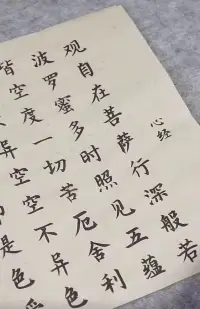 心经
观自在菩萨行深般若
波罗蜜多时照见五蕴
皆空度一切苦厄舍利
异空空不异色
是色